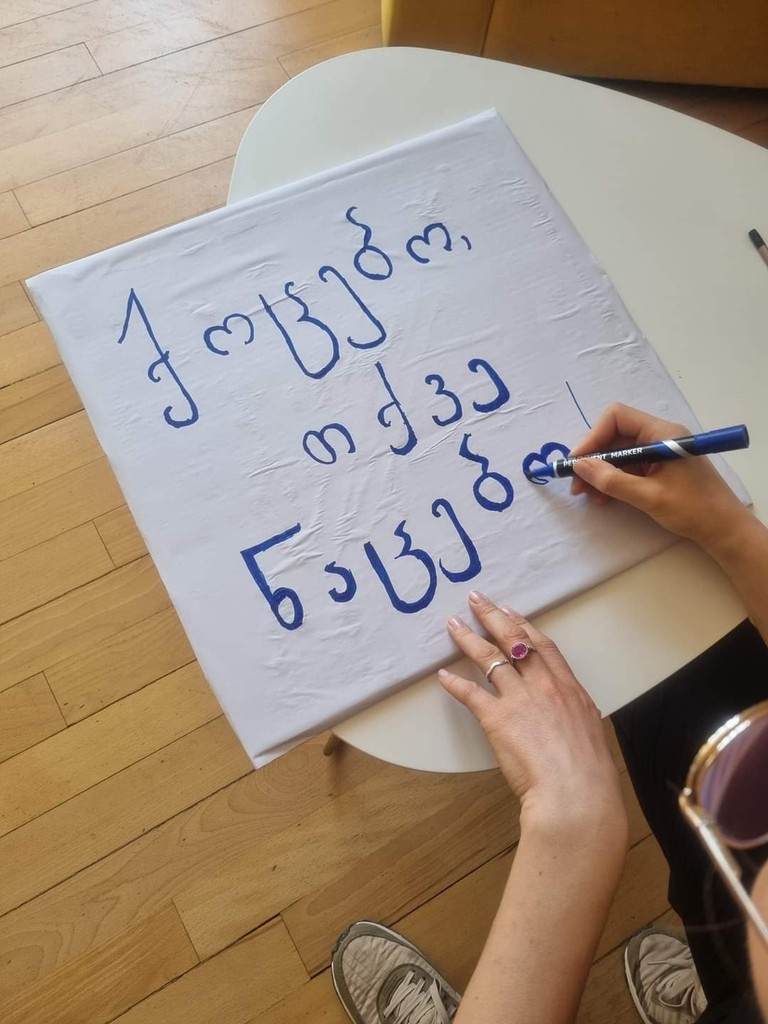 ქოცებო,
თქვე
ნაცებო!
PERMANENT MARKER